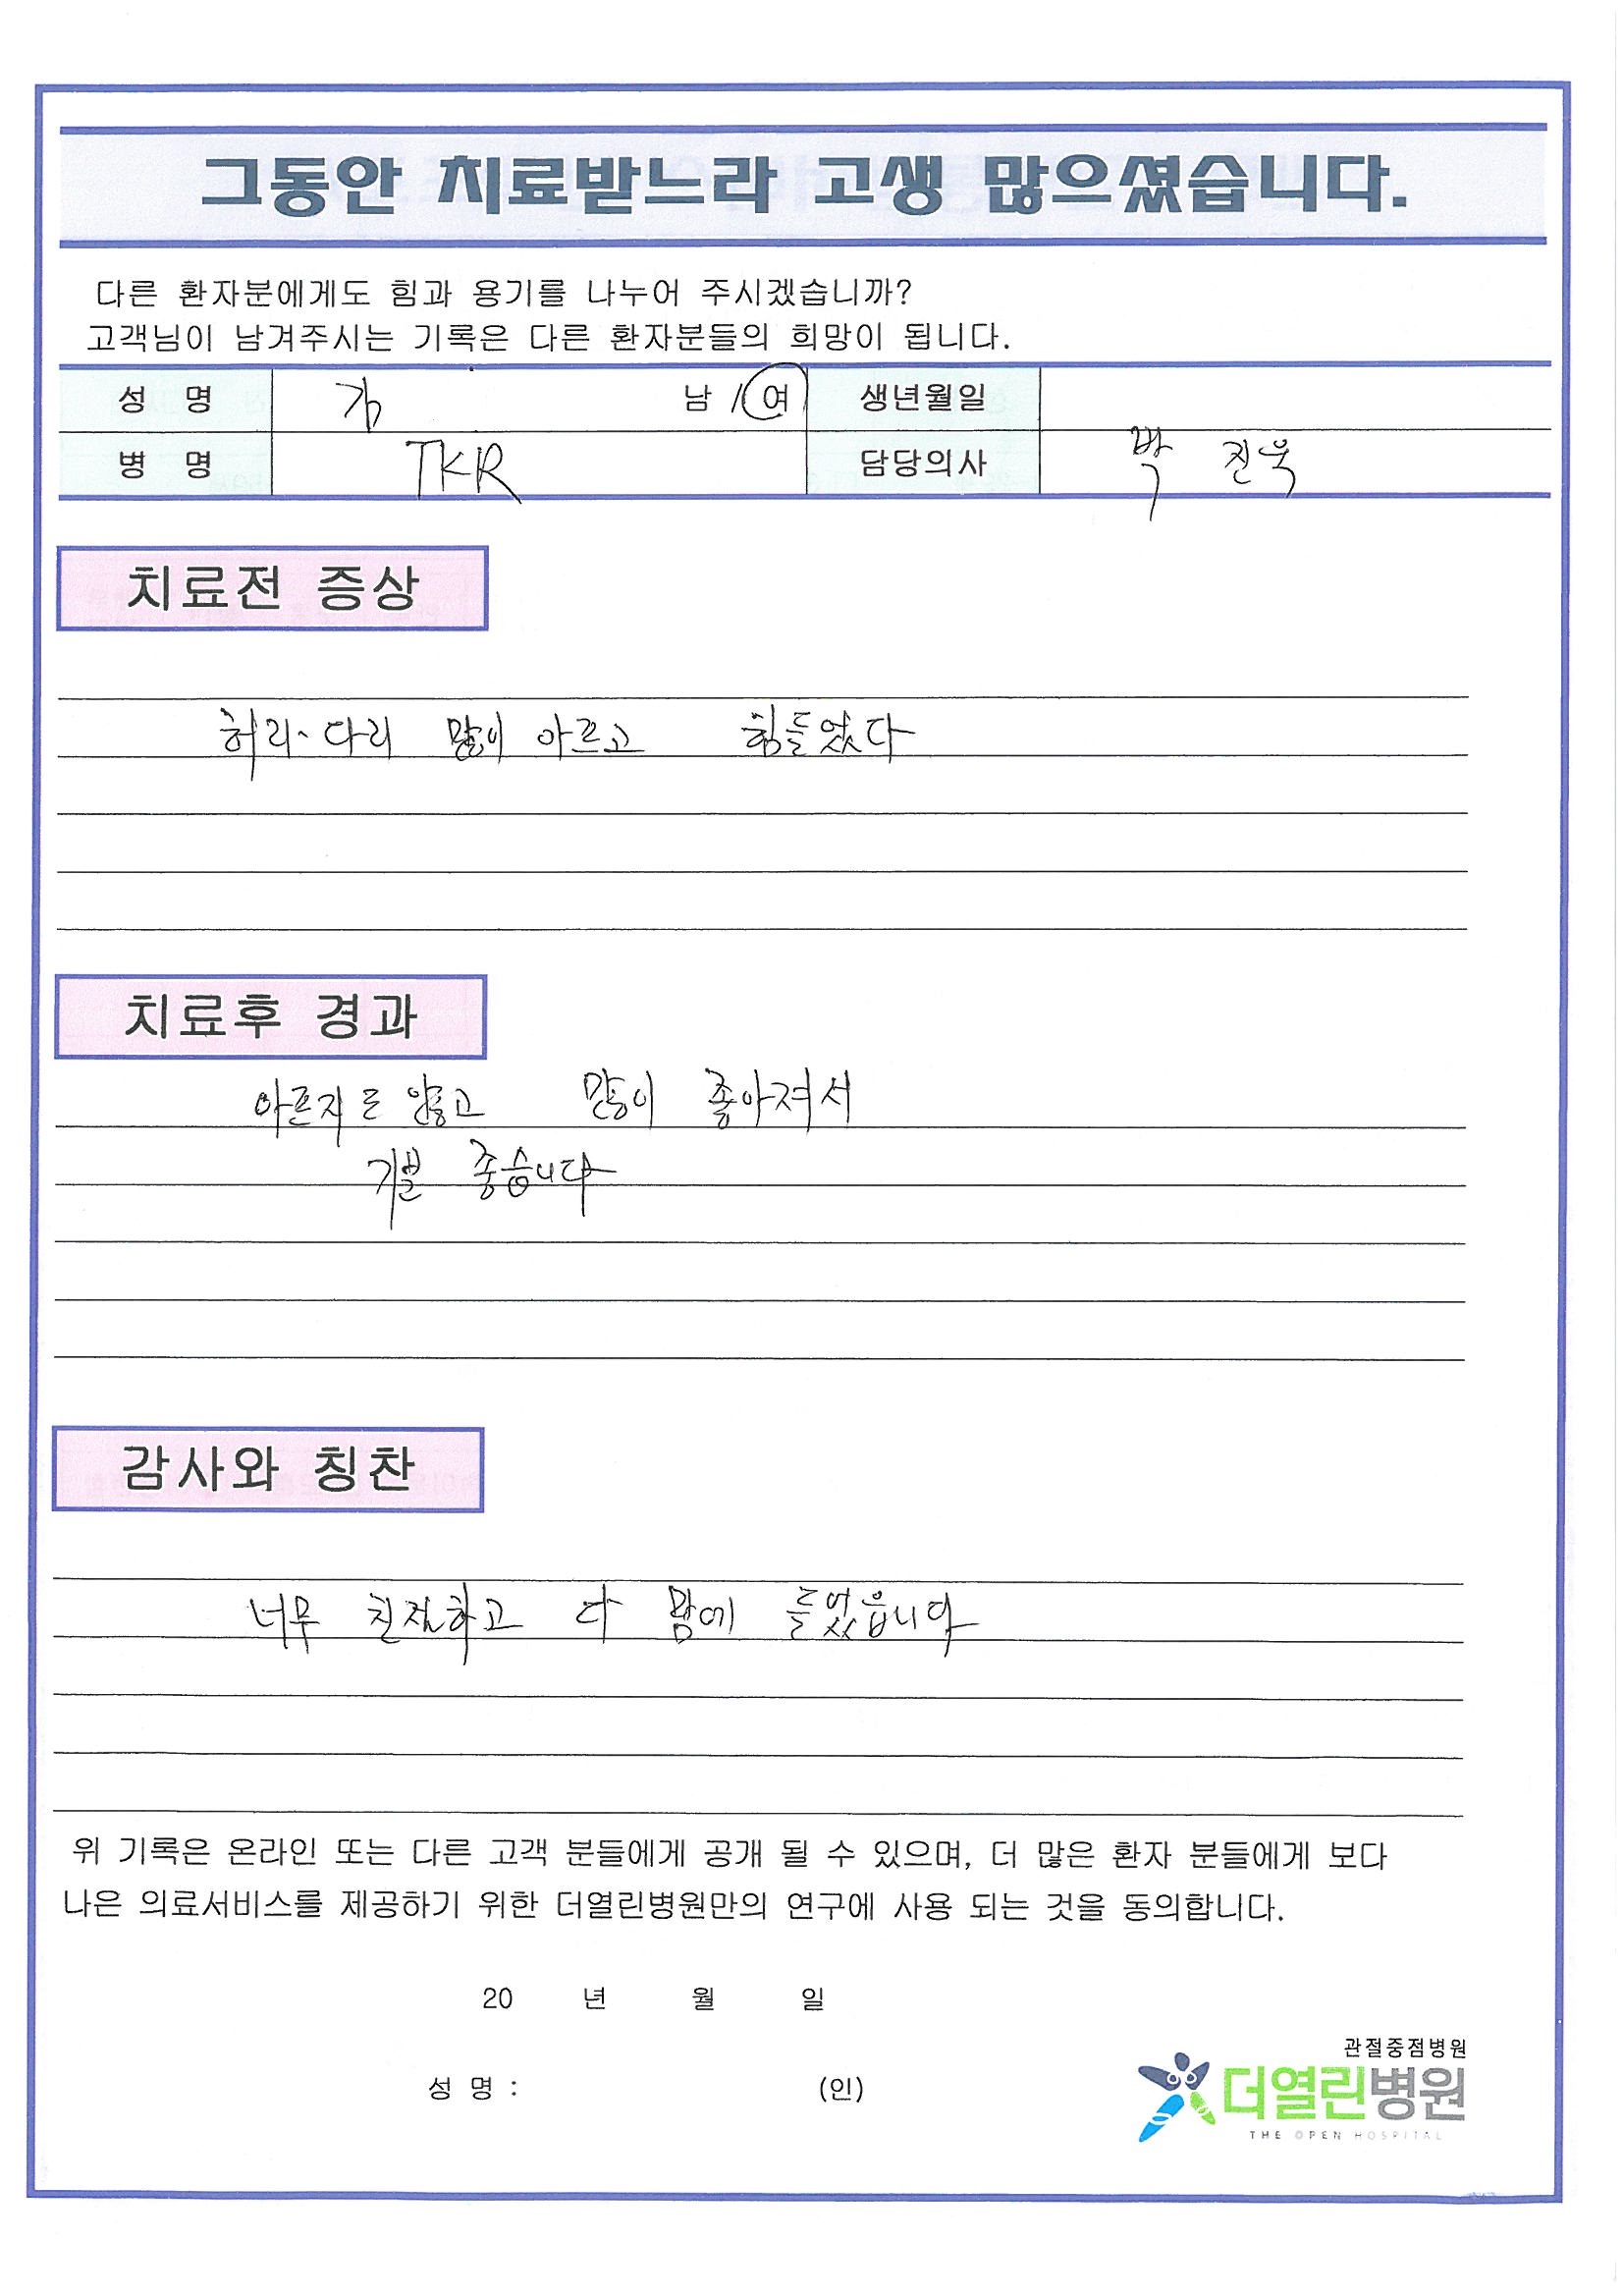 그동안 치료받느라 고생 많으셨습니다.
다른 환자분에게도 힘과 용기를 나누어 주시겠습니까?
고객님이 남겨주시는 기록은 다른 환자분들의 희망이 됩니다.
성 명 김 남 / 여 생년월일
병 명 TKR 담당의사 박 진욱
치료전 증상
허리、다리 많이 아르고 힘들었다
치료후 경과
아프지도 않고 많이 좋아져서
기분 좋습니다
감사와 칭찬
너무 친절하고 다 맘에 들었읍니다
위 기록은 온라인 또는 다른 고객 분들에게 공개 될 수 있으며, 더 많은 환자 분들에게 보다
나은 의료서비스를 제공하기 위한 더열린병원만의 연구에 사용 되는 것을 동의합니다.
20 년 월 일
성 명 : (인)
관절중점병원
더열린병원
THE OPEN HOSPITAL